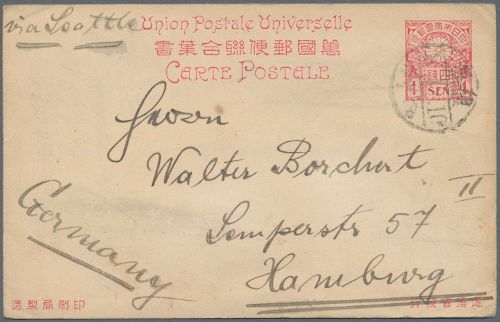 via Seattle
Union Postale Universelle
萬國郵便聯合葉書
CARTE POSTALE
大日本帝國郵便
四錢
4 SEN 4
Herrn
Walter Borchert
II
Semperstr 57
Hamburg
Germany
印刷局製造
逓信省發行